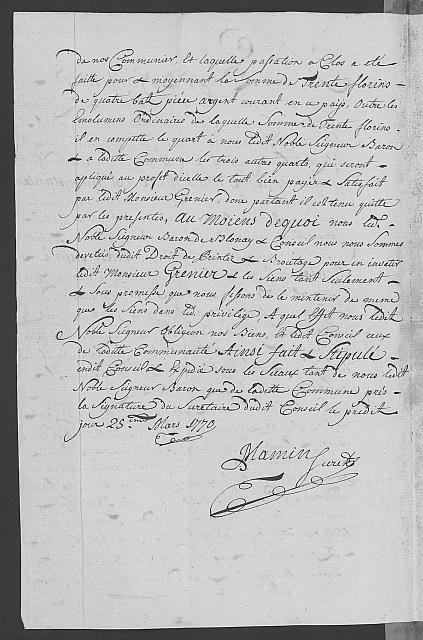 de nos Communier, Et laquelle passation a Clos a eté
faitte pour & moyennant la Somme de Trente florins
de quatre bats piece argent courant en ce pais, Outre les
Emolumens Ordinaires de laquelle Somme de Trente florins
il en compette le quart a nous ledit Noble Seigneur Baron
& a laditte Commune les trois autres quarts, qui seront
apliqué au profit d'icelle le tout bien payer & Satisfait
par ledit Monsieur Grenier, dont partant il est tenu quitte
par les presentes, au Moiens dequoi nous led.
Noble Seigneur Baron de Blonay & Conseil nous nous Sommes
devetus dudit Droit de Printer & Broutage pour en investir
ledit Monsieur Grenier & les Siens tant Seulement
& Sous promesse que nous fesons de le maintenir de meme
que les Siens dans led. privilege. A quel Effet nous ledit
Noble Seigneur Obligeon nos Biens, & ledit Conseil ceux
de laditte Communauté Ainsi fait & Stipulé
endit Conseil & Expedié sous les Sceaux tant de nous ledit
Noble Seigneur Baron que de laditte Commune prés
la Signature du Secretaire dudit Conseil le predit
jour 25.ème Mars 1770.
Mamin Secret.